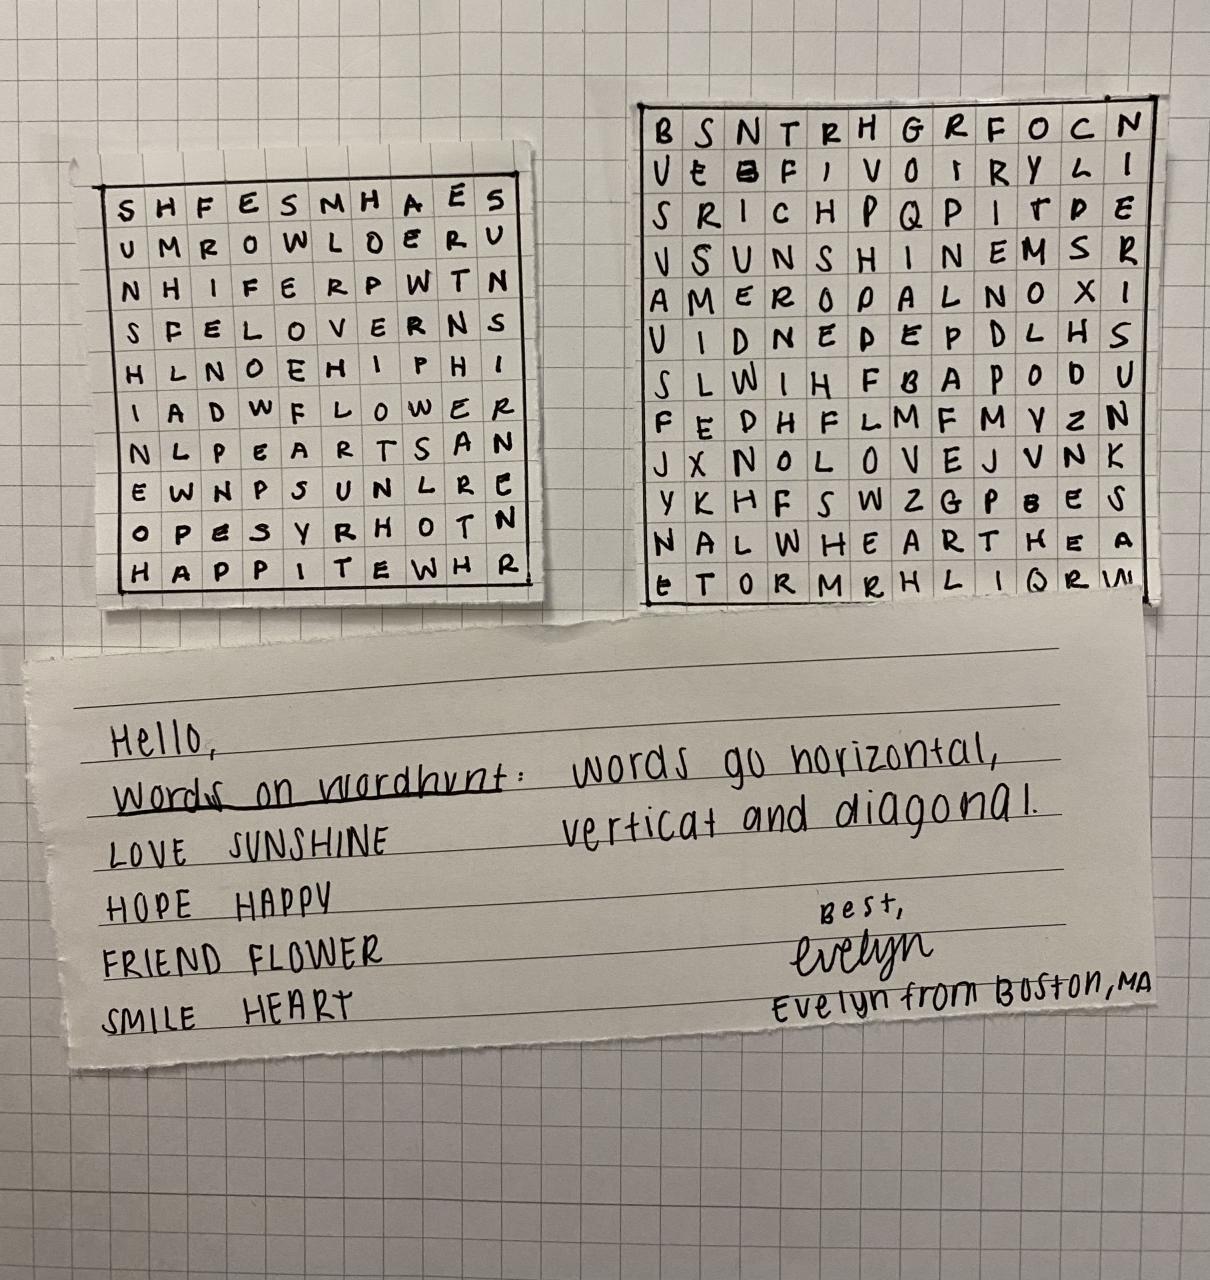 S H F E S M H A E S
U M R O W L O E R U
N H I F E R P W T N
S F E L O V E R N S
H L N O E H I P H I
I A D W F L O W E R
N L P E A R T S A N
E W N P S U N L R E
O P E S Y R H O T N
H A P P I T E W H R
B S N T R H G R F O C N
U E B F I V O I R Y L I
S R I C H P Q P I T D E
V S U N S H I N E M S R
A M E R O D A L N O X I
U I D N E D E P D L H S
S L W I H F B A P O D U
F E D H F L M F M Y Z N
J X N O L O V E J V N K
Y K H F S W Z G P B E S
N A L W H E A R T H E A
E T O R M R H L I Q R W
Hello,
Words on wordhunt: words go horizontal,
LOVE SUNSHINE verticat and diagonal.
HOPE HAPPY
Best,
FRIEND FLOWER evelyn
SMILE HEART Evelyn from Boston, MA